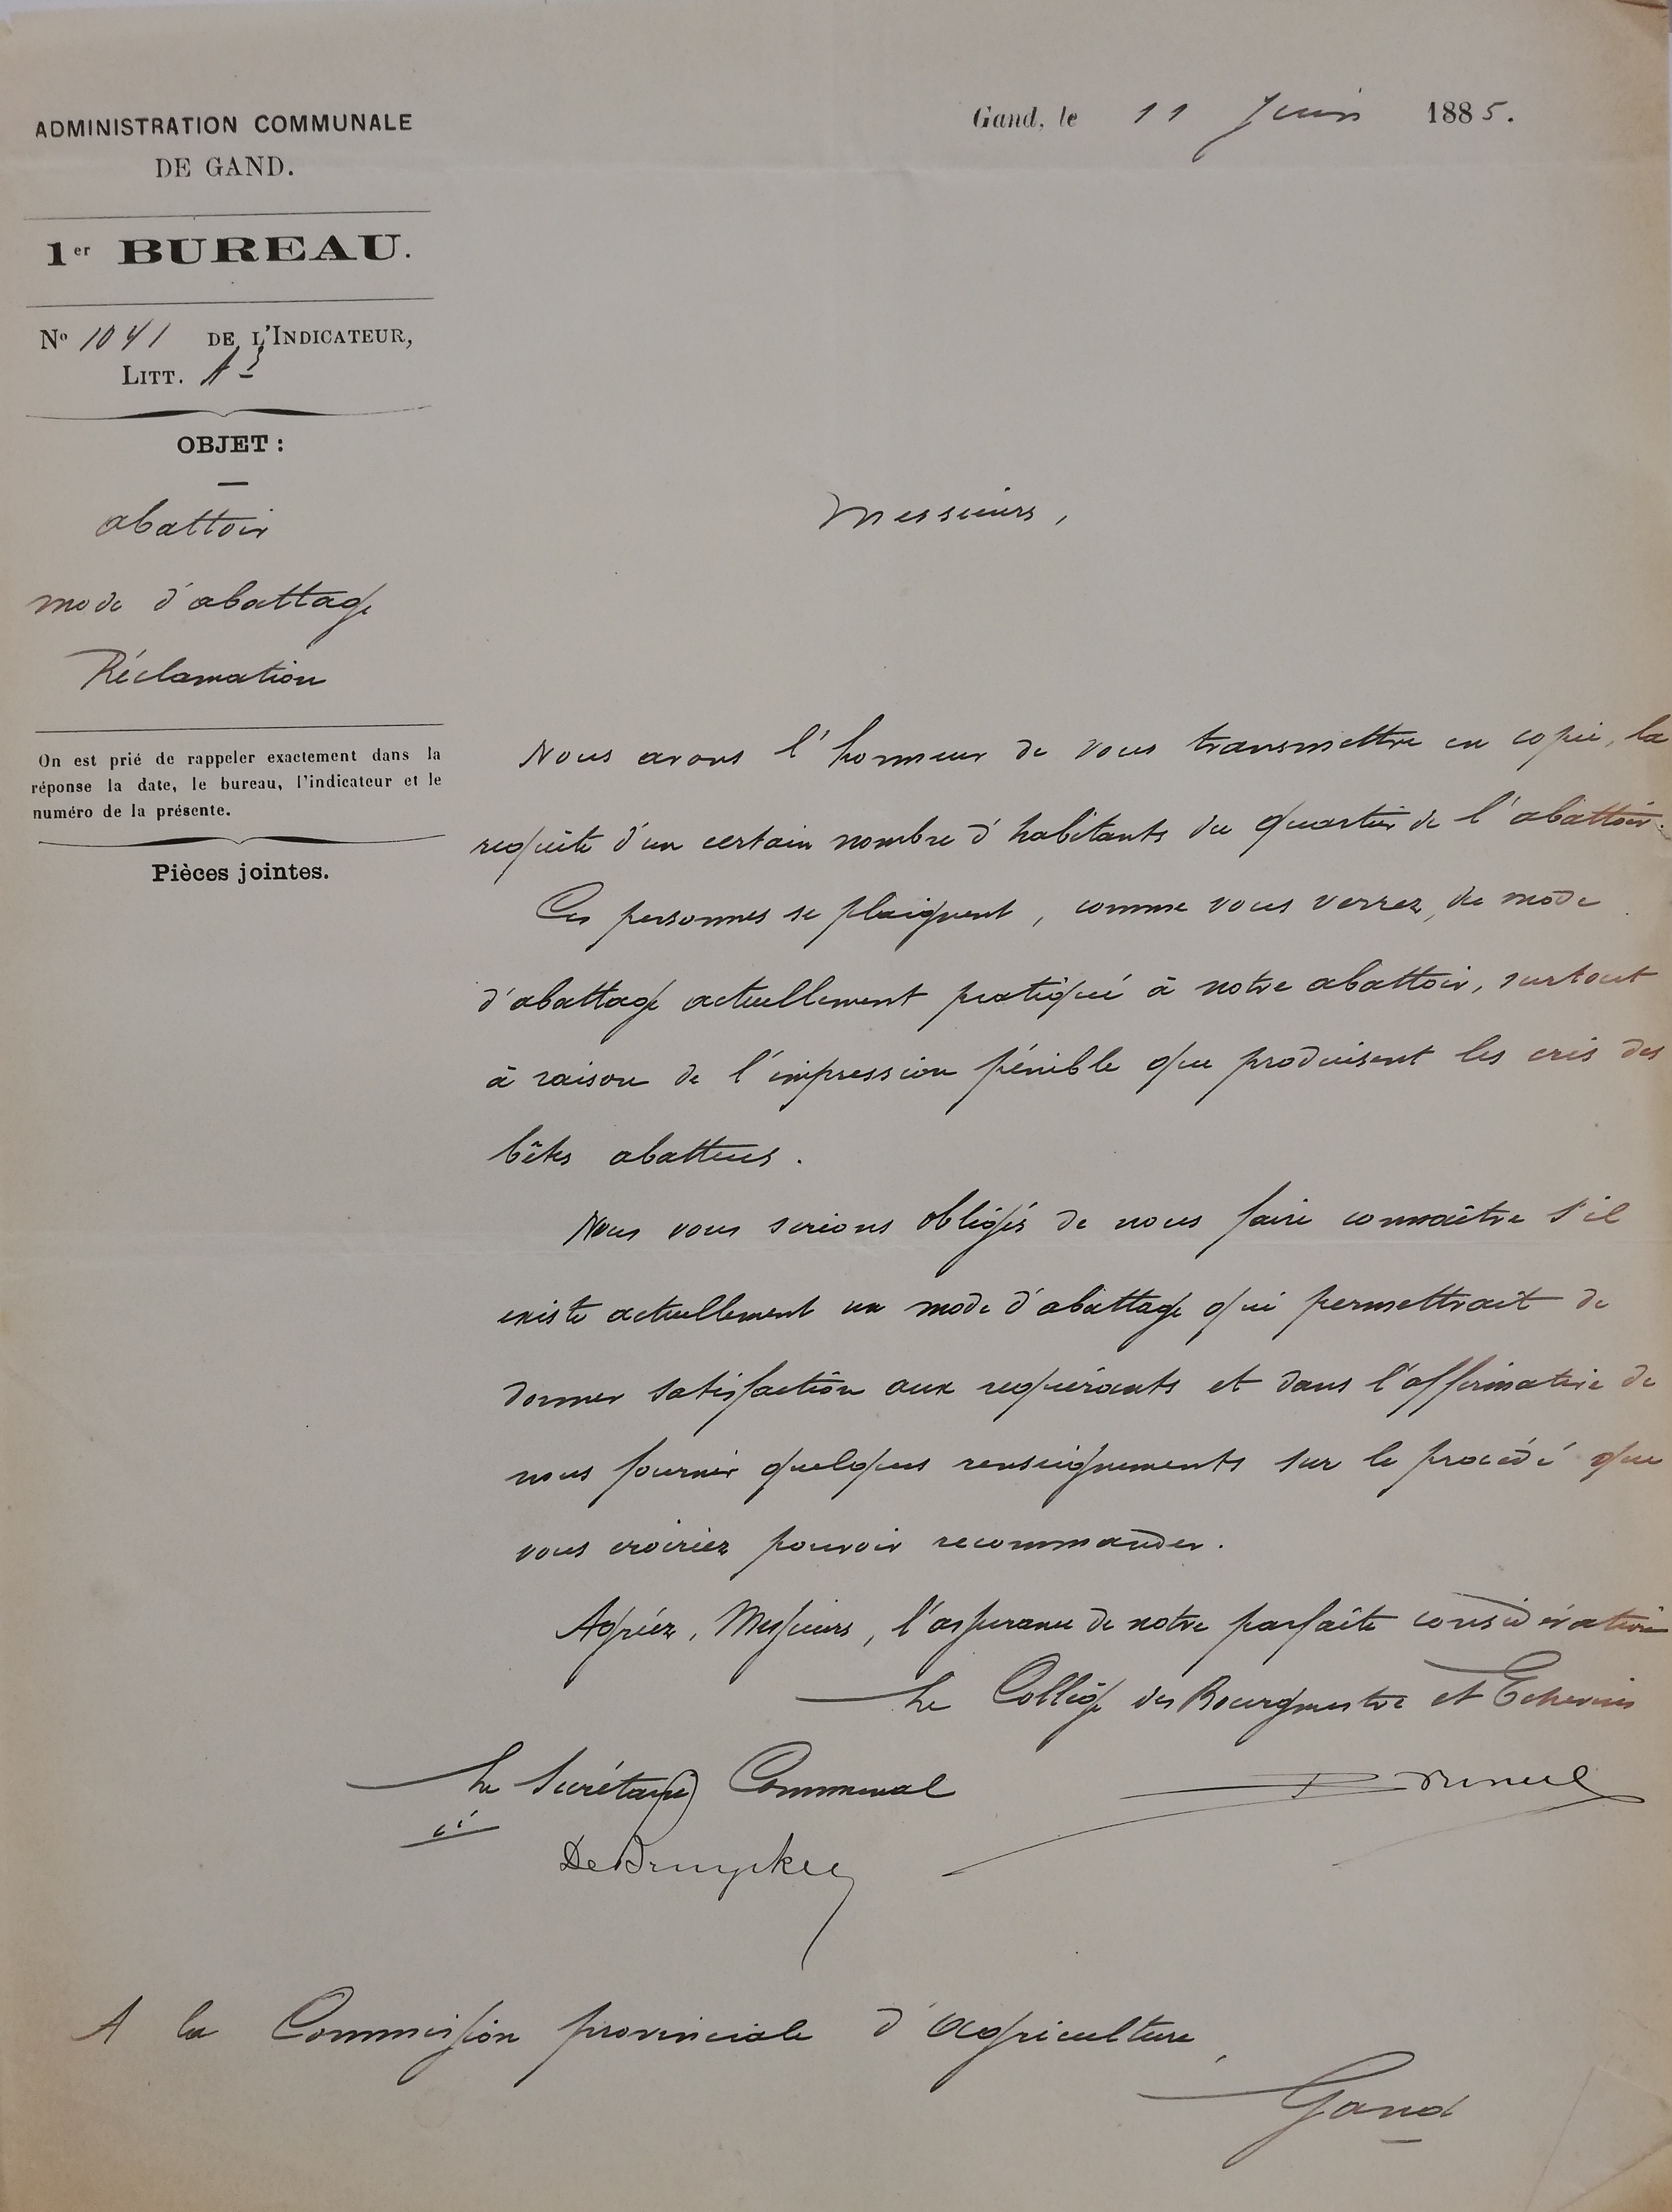 ADMINISTRATION COMMUNALE
DE GAND.
1er BUREAU.
No 1041 DE L'INDICATEUR,
LITT. A
OBJET :
abattoir
mode d'abattage
Réclamation
On est prié de rappeler exactement dans la
réponse la date, le bureau, l'indicateur et le
numéro de la présente.
Pièces jointes.
Gand, le 11 Juin 1885.
Messieurs,
Nous avons l'honneur de vous transmettre en copie, la
requête d'un certain nombre d'habitants du quartier de l'abattoir.
Ces personnes se plaignent, comme vous verrez, du mode
d'abattage actuellement pratiqué à notre abattoir, surtout
à raison de l'impression pénible que produisent les cris des
bêtes abattues.
Nous vous serions obligés de nous faire connaître s'il
existe actuellement un mode d'abattage qui permettrait de
donner satisfaction aux requérants et dans l'affirmative de
nous fournir quelques renseignements sur le procédé que
vous croiriez pouvoir recommander.
Agréez, Messieurs, l'assurance de notre parfaite considération
Le Collège des Bourgmestre et Echevins
Le Secrétaire Communal
DeBruycker
A la Commission provinciale d'agriculture,
Gand